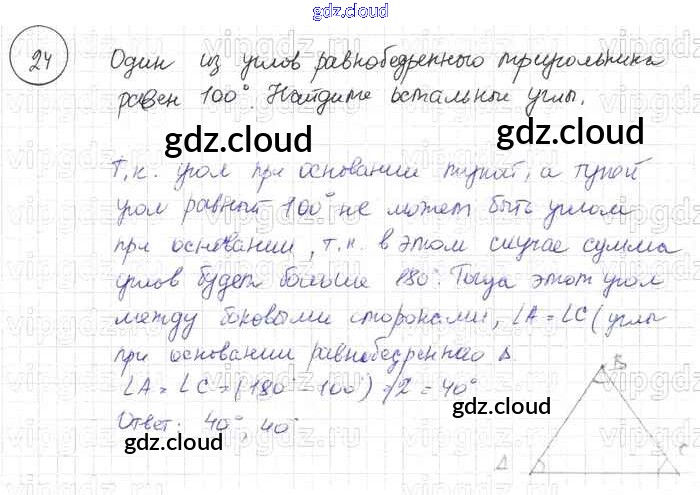 gdz.cloud
24 Один из углов равнобедренного треугольника
равен 100°. Найдите остальные углы.
gdz.cloud gdz.cloud
Т.к. угол при основании тупой, а тупой
угол равный 100° не может быть углом
при основании, т.к. в этом случае сумма
углов будет больше 180°. Тогда этот угол
между боковыми сторонами, ∠A = ∠C (углы
при основании равнобедренного Δ
∠A = ∠C = (180° - 100°) : 2 = 40°
Ответ: 40°, 40°
gdz.cloud gdz.cloud
B
A
C